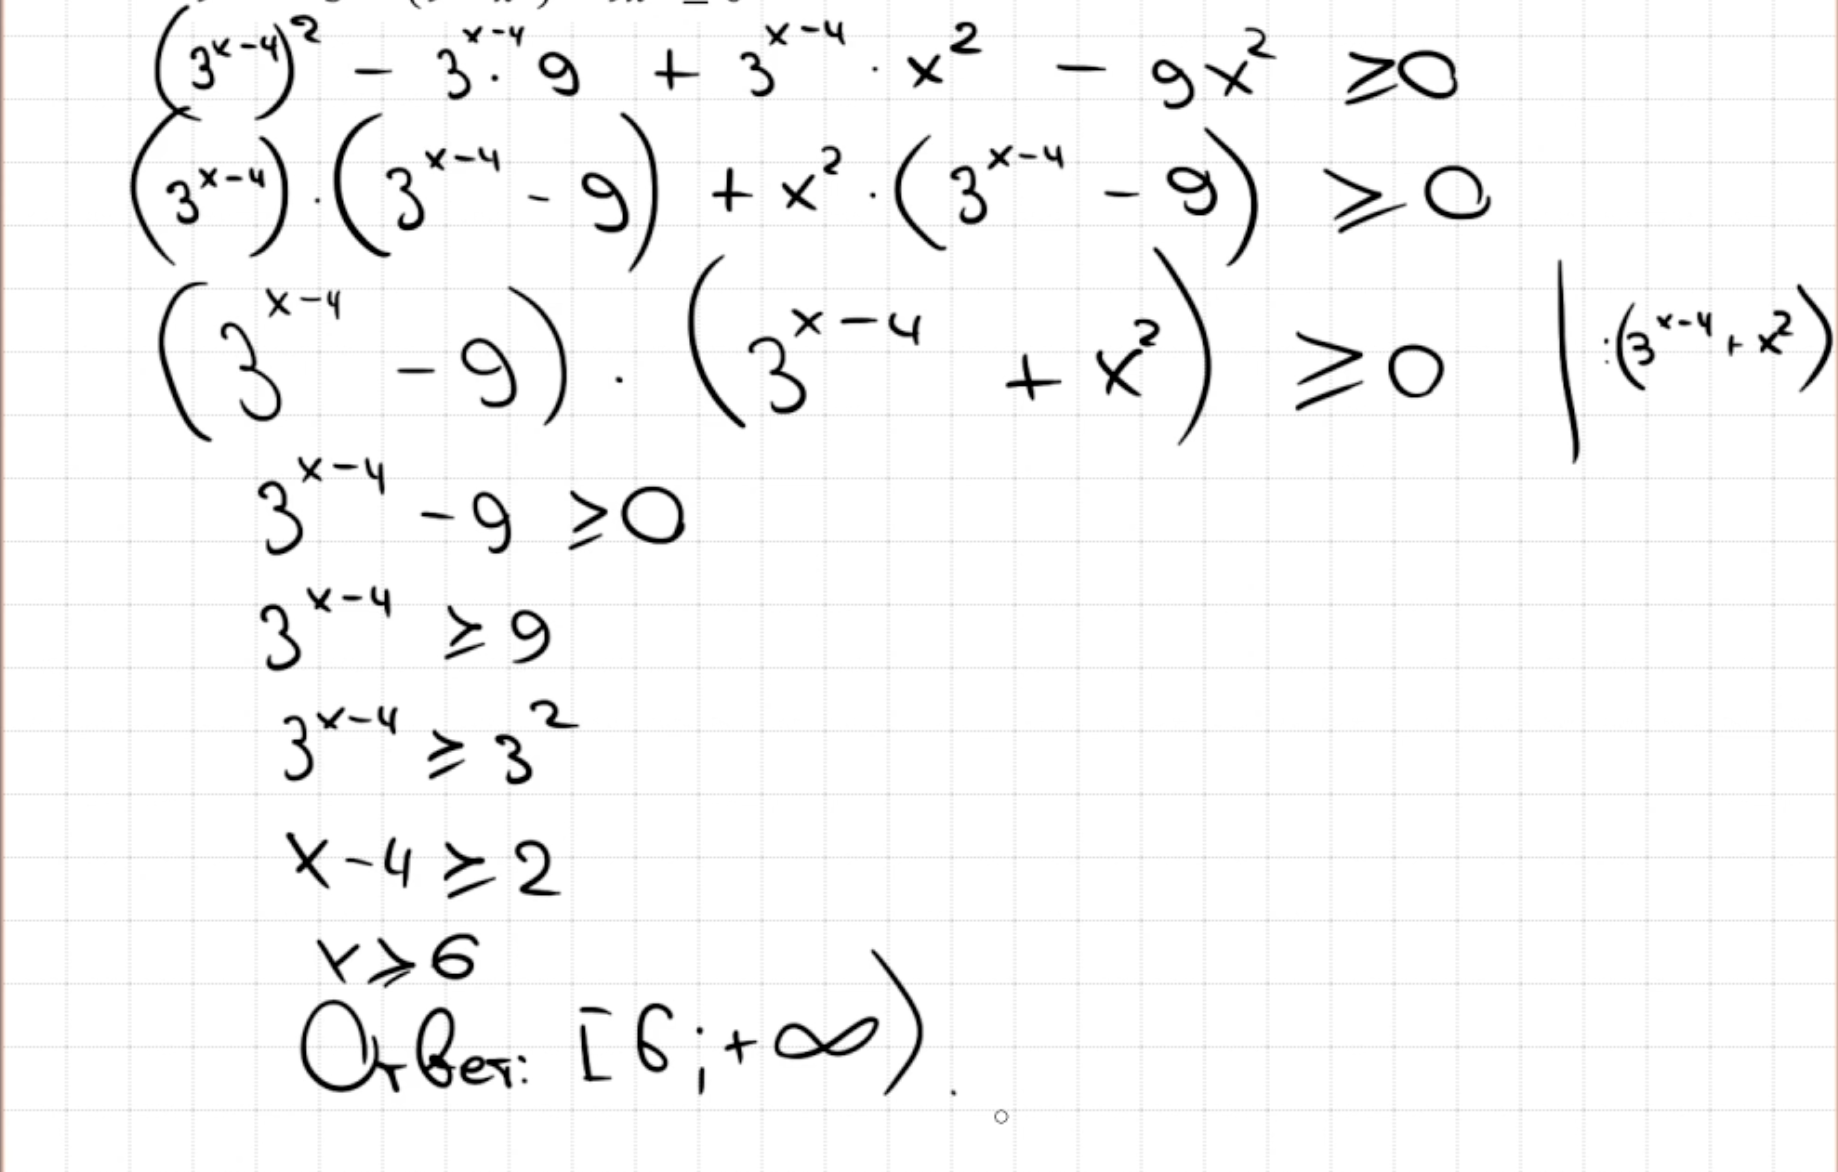 (3^{x-4})^2 - 3^{x-4} · 9 + 3^{x-4} · x^2 - 9x^2 ≥ 0
(3^{x-4}) · (3^{x-4} - 9) + x^2 · (3^{x-4} - 9) ≥ 0
(3^{x-4} - 9) · (3^{x-4} + x^2) ≥ 0 | :(3^{x-4} + x^2)
3^{x-4} - 9 ≥ 0
3^{x-4} ≥ 9
3^{x-4} ≥ 3^2
x - 4 ≥ 2
x ≥ 6
Ответ: [6; +∞).